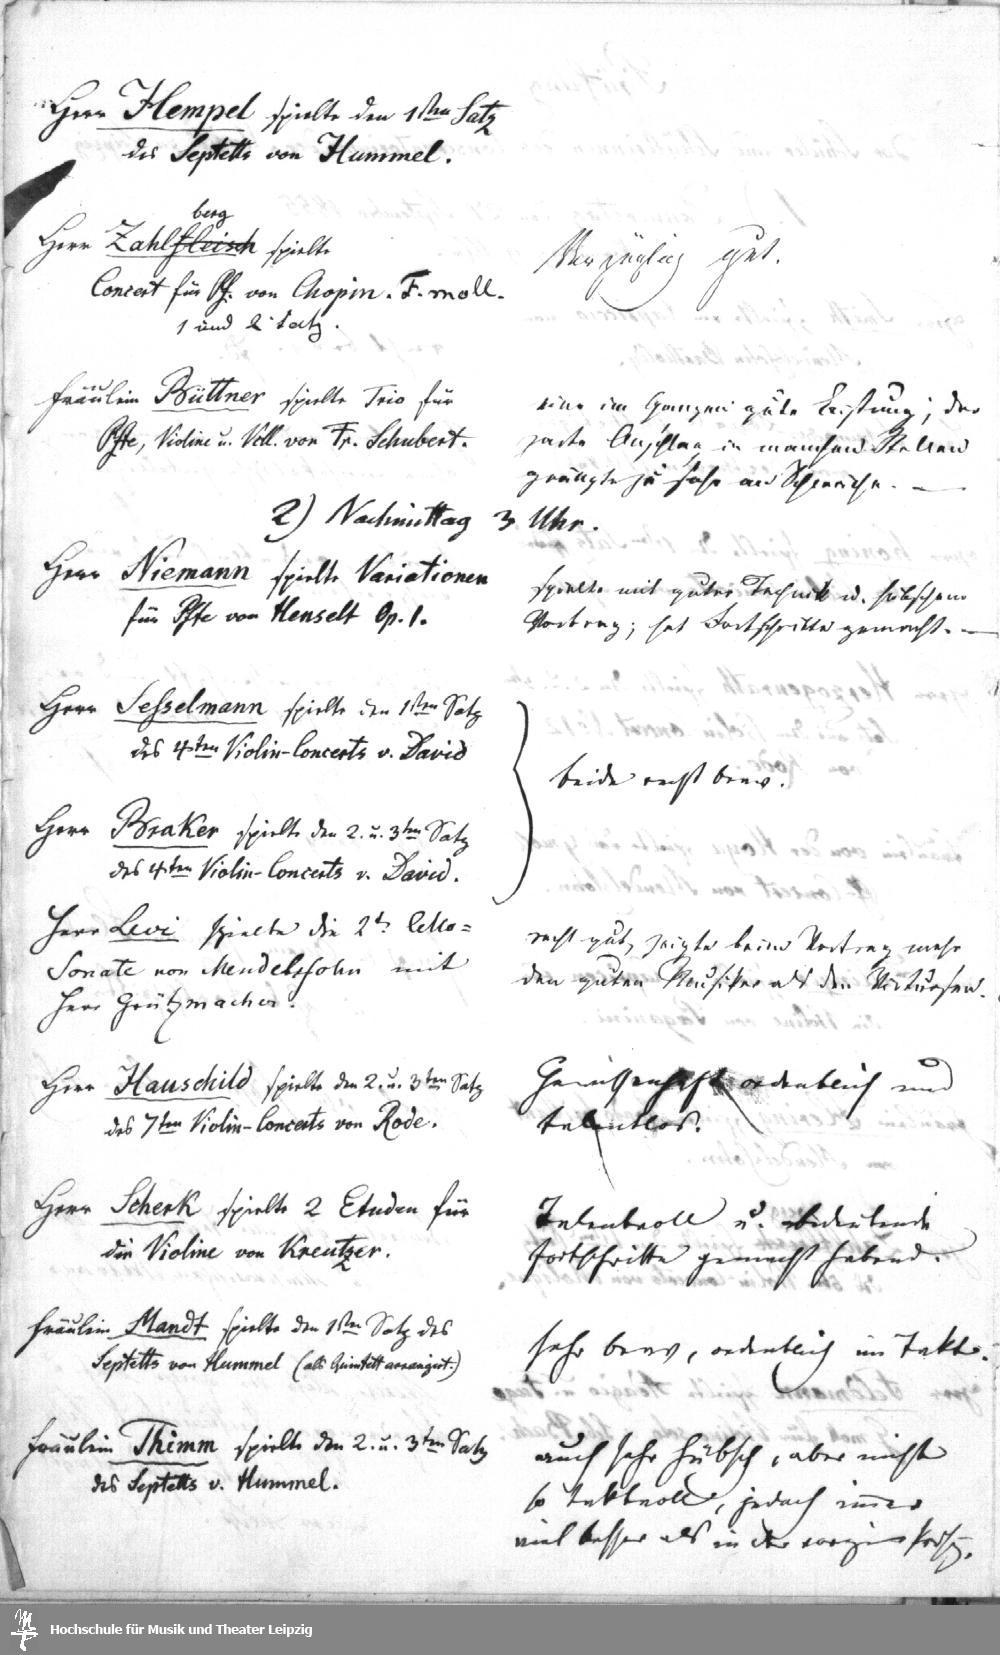 Herr Hempel spielte den 1sten Satz
des Septetts von Hummel.
berg
Herr Zahlfleisch spielte
Concert für Pf. von Chopin. F. moll.
1 und 2 Satz.
Vorzüglich gut.
Fräulein Büttner spielte Trio für
Pfte, Violine u. Vcll. von Fr. Schubert.
eine im Ganzen gute Leistung; der
zarte Anschlag in manchen Stellen
gränzte zu sehr an Schwäche. —
2) Nachmittag 3 Uhr.
Herr Niemann spielte Variationen
für Pfte von Henselt Op. 1.
spielte mit guter Technik u. hübschem
Vortrag; hat Fortschritte gemacht. —
Herr Sesselmann spielte den 1sten Satz
des 4ten Violin-Concerts v. David
beide recht brav.
Herr Braker spielte den 2. u. 3ten Satz
des 4ten Violin-Concerts v. David.
Herr Levi spielte die 2te Cello=
Sonate von Mendelssohn mit
Herr Grützmacher.
recht gut, zeigte beim Vortrag mehr
den guten Musiker als den Virtuosen.
Herr Hauschild spielte den 2. u. 3ten Satz
des 7ten Violin-Concerts von Rode.
Gewissenhaft ordentlich und
talentlos.
Herr Scherk spielte 2 Etuden für
die Violine von Kreutzer.
Talentvoll u. bedeutende
Fortschritte gemacht habend.
Fräulein Mandt spielte den 1sten Satz des
Septetts von Hummel (als Quintett arrangirt.)
sehr brav, ordentlich im Takte.
Fräulein Thimm spielte den 2. u. 3ten Satz
des Septetts v. Hummel.
auch sehr hübsch, aber nicht
so taktvoll, jedoch immer
viel besser als in der vorigen
Hochschule für Musik und Theater Leipzig